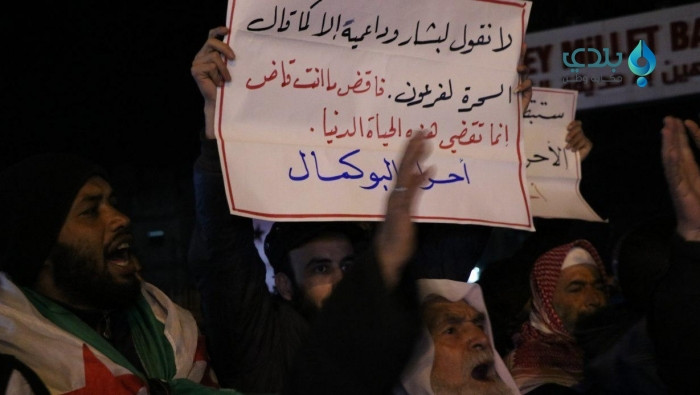 لا نقول لبشار وداعميه إلا كما قال
السحرة لفرعون. فاقض ما انت قاض
إنما تقضي هذه الحياة الدنيا.
أحرار البوكمال
بلدي
EY MILLET BA
ستبق
الأحر